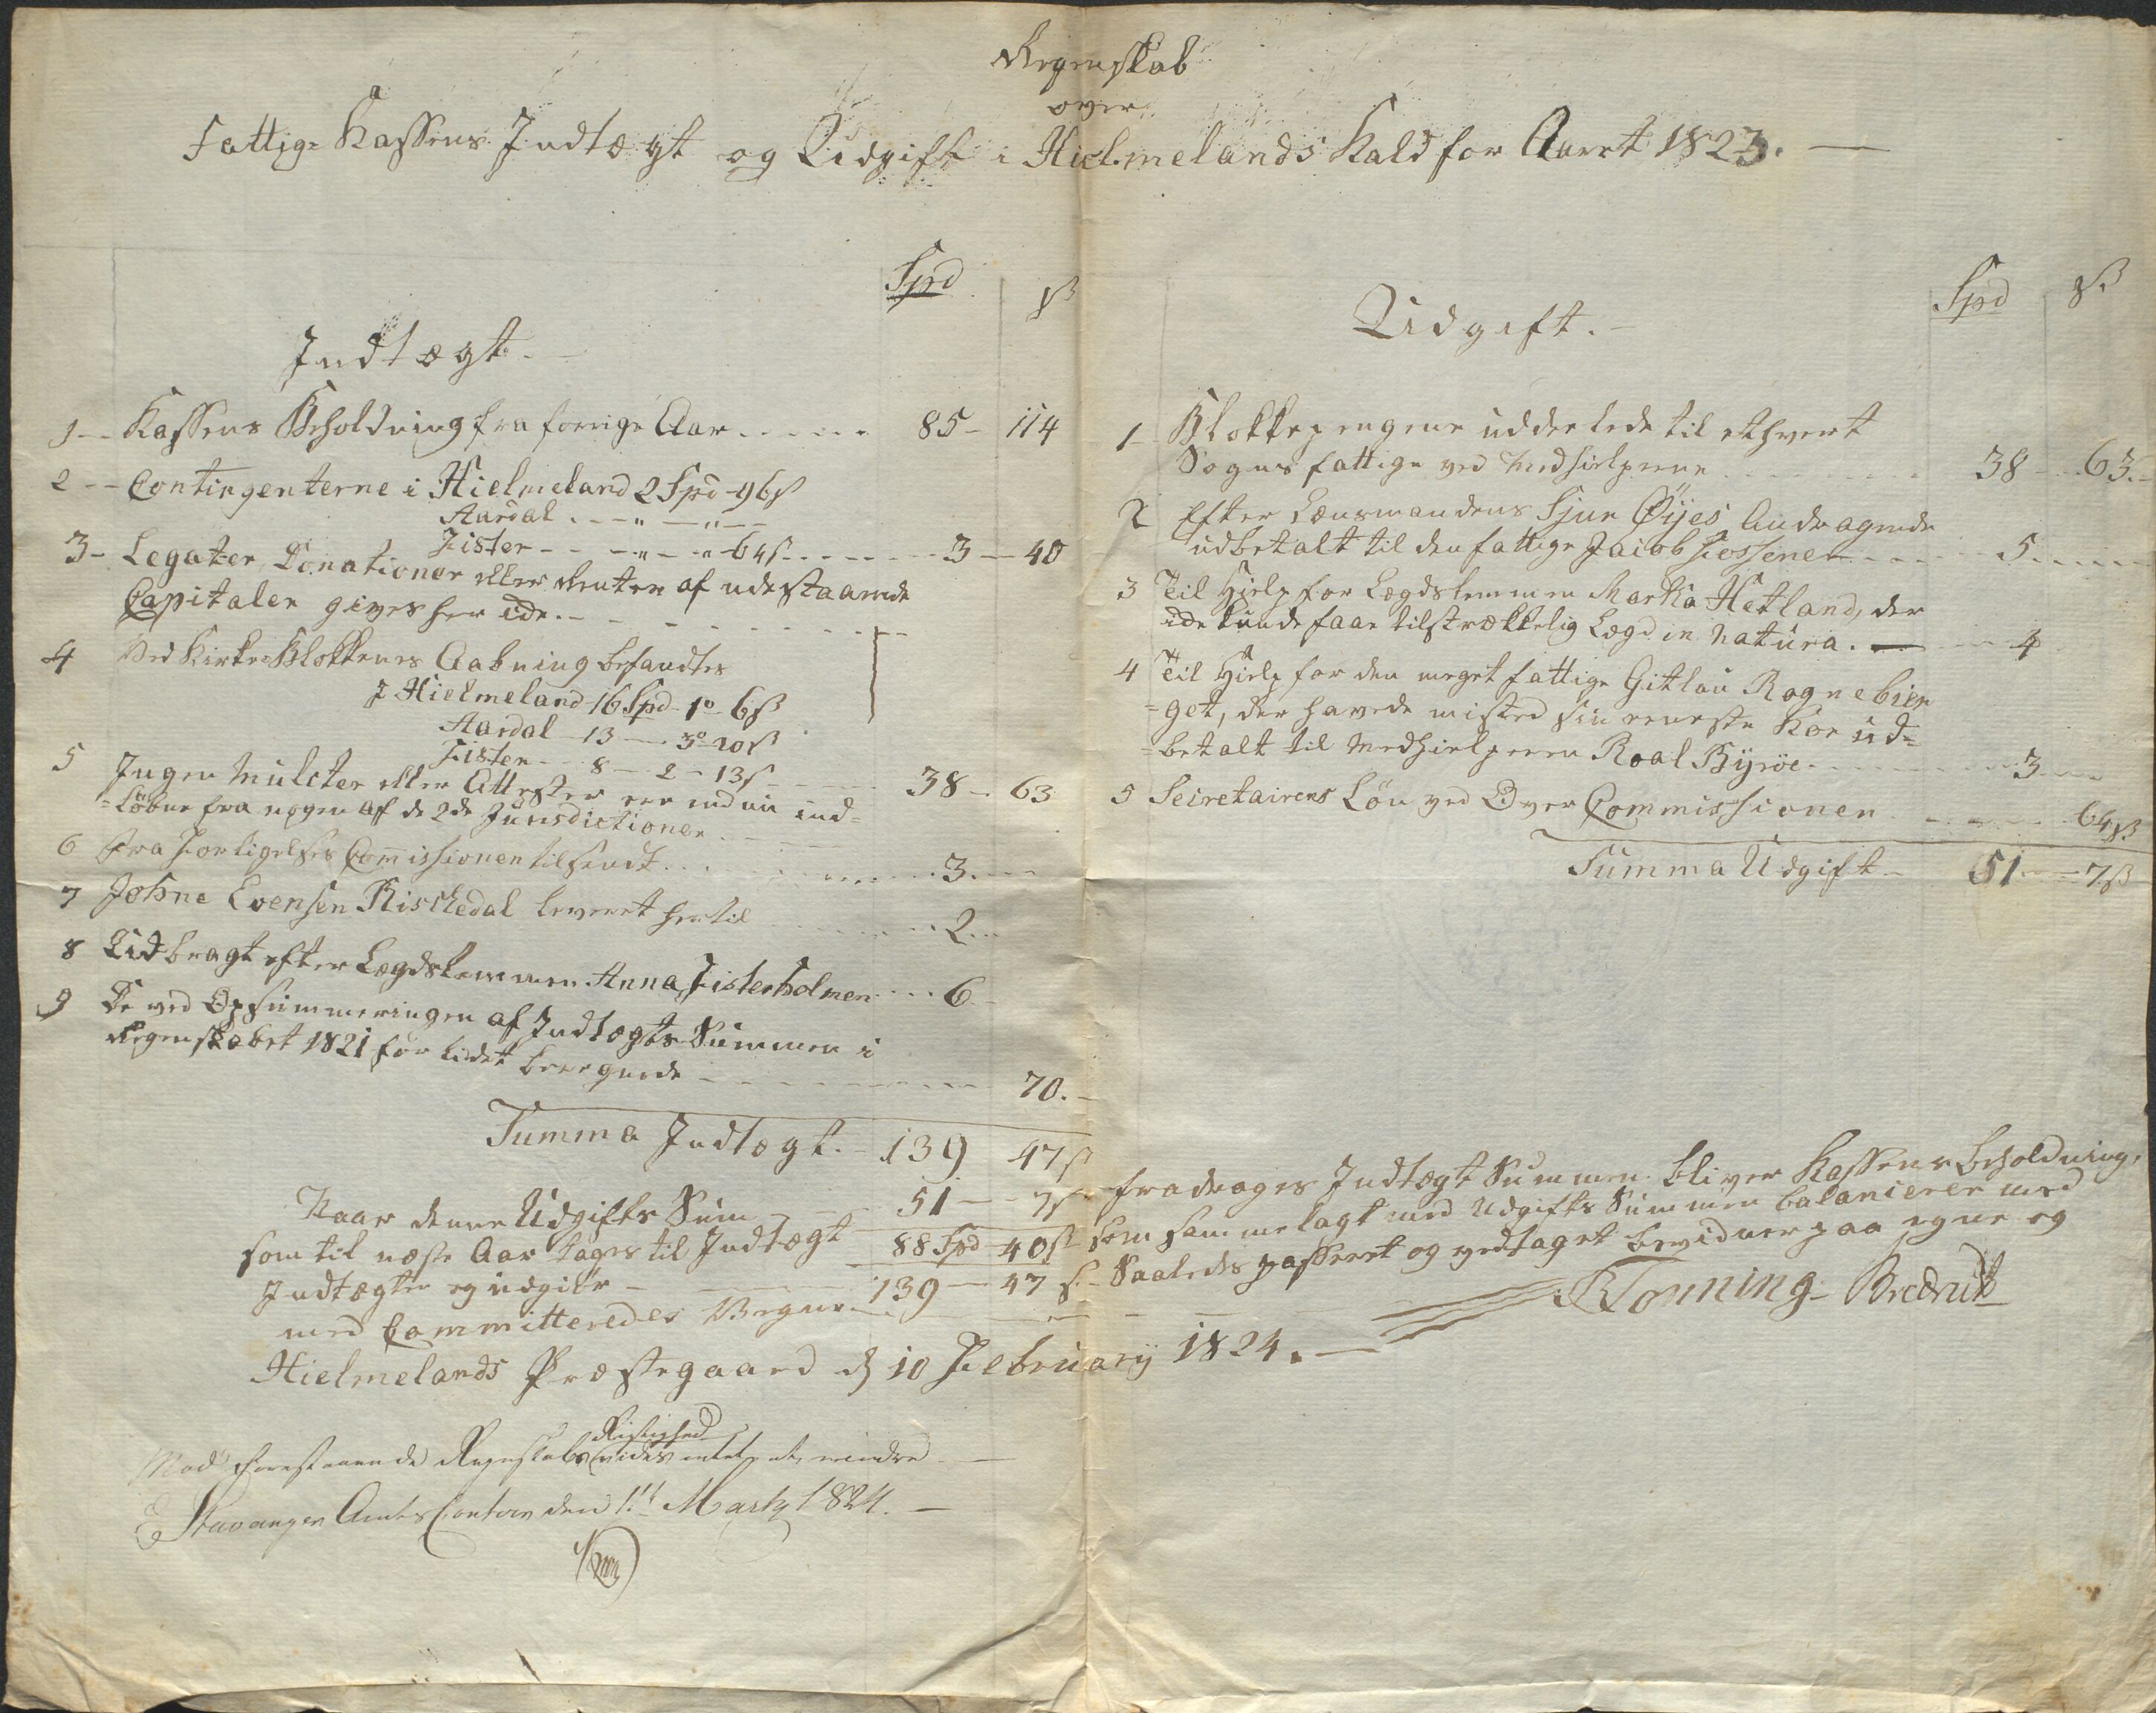 Regenskab
over
Fattig-Kassens Indtægt og Udgift i Hielmelands Kald for Aaret 1823.
Spd ß
Indtægt.
1 Kassens Beholdning fra forrige Aar 85 - 114
2 Contingenterne i Hielmeland 2 Spd - 96 ß
Aardal - " - " -
Fister - " - " - 64 ß 3 - 40
3 Legater, Donationer eller Renter af udestaaende
Capitaler gives her icke.
4 Ved Kirke-Blokkenes Aabning befandtes
I Hielmeland 16 Spd - 1 o - 6 ß
Aardal 13 - 3 o - 20 ß
Fister - 8 - 2 - 13 ß 38 - 63
5 Ingen Mulcter eller Attester ere end nu ind=
=løbne fra nogen af de 2de Jurisdictioner.
6 Fra Forligelses Commissionen tilsendt 3.
7 Johne Evensen Rischedal leveret hertil 2
8 Udbragt efter Lægdslemmen Anna Fisterholmen 6
9 De ved Opsummeringen af Indtægts-Summen i
Regenskabet 1821 for lidet beregnede 70.
Summa Indtægt. 139 47 ß
Spd ß
Udgift.
1 Blokkepengene uddeelede til ethvert
Sogns fattige ved Medhielperne 38 - 63.
2 Efter Lensmandens Sjur Øÿes Andragende
udbetalt til den fattige Jacob 5
3 Til Hielp for Lægdslemmen Martha Hetland, der
icke kunde faae tilstrækkelig Lægd in natura. 4
4 Til Hielp for den meget fattige Gitlau Rognebier
=get, der havde mistet sin eneste Koe ud=
=betalt til Medhielperen Roal Byrøe 3
5 Secretairens Løn ved Over Commissionen 64 ß
Summa Udgift 51 - 7 ß
Naar denne Udgifts Sum 51 - 7 ß fradrages Indtægt Summen bliver Kassens beholdning,
som til næste Aar tages til Indtægt 88 Spd 40 ß som sammelagt med Udgifts Summen balancerer med
Indtægten og udgiør 139 - 47 ß. Saaledes passeret og vedtaget bevidner paa egne og
med Committeredes Vegne
Hielmelands Præstegaard d. 10 February 1824.
Kønning- Bredrup
Mod forestaaende Regnskabs Rigtighed vides intet at erindre
Stavanger Amts Contoir den 1ste Marty 1824.